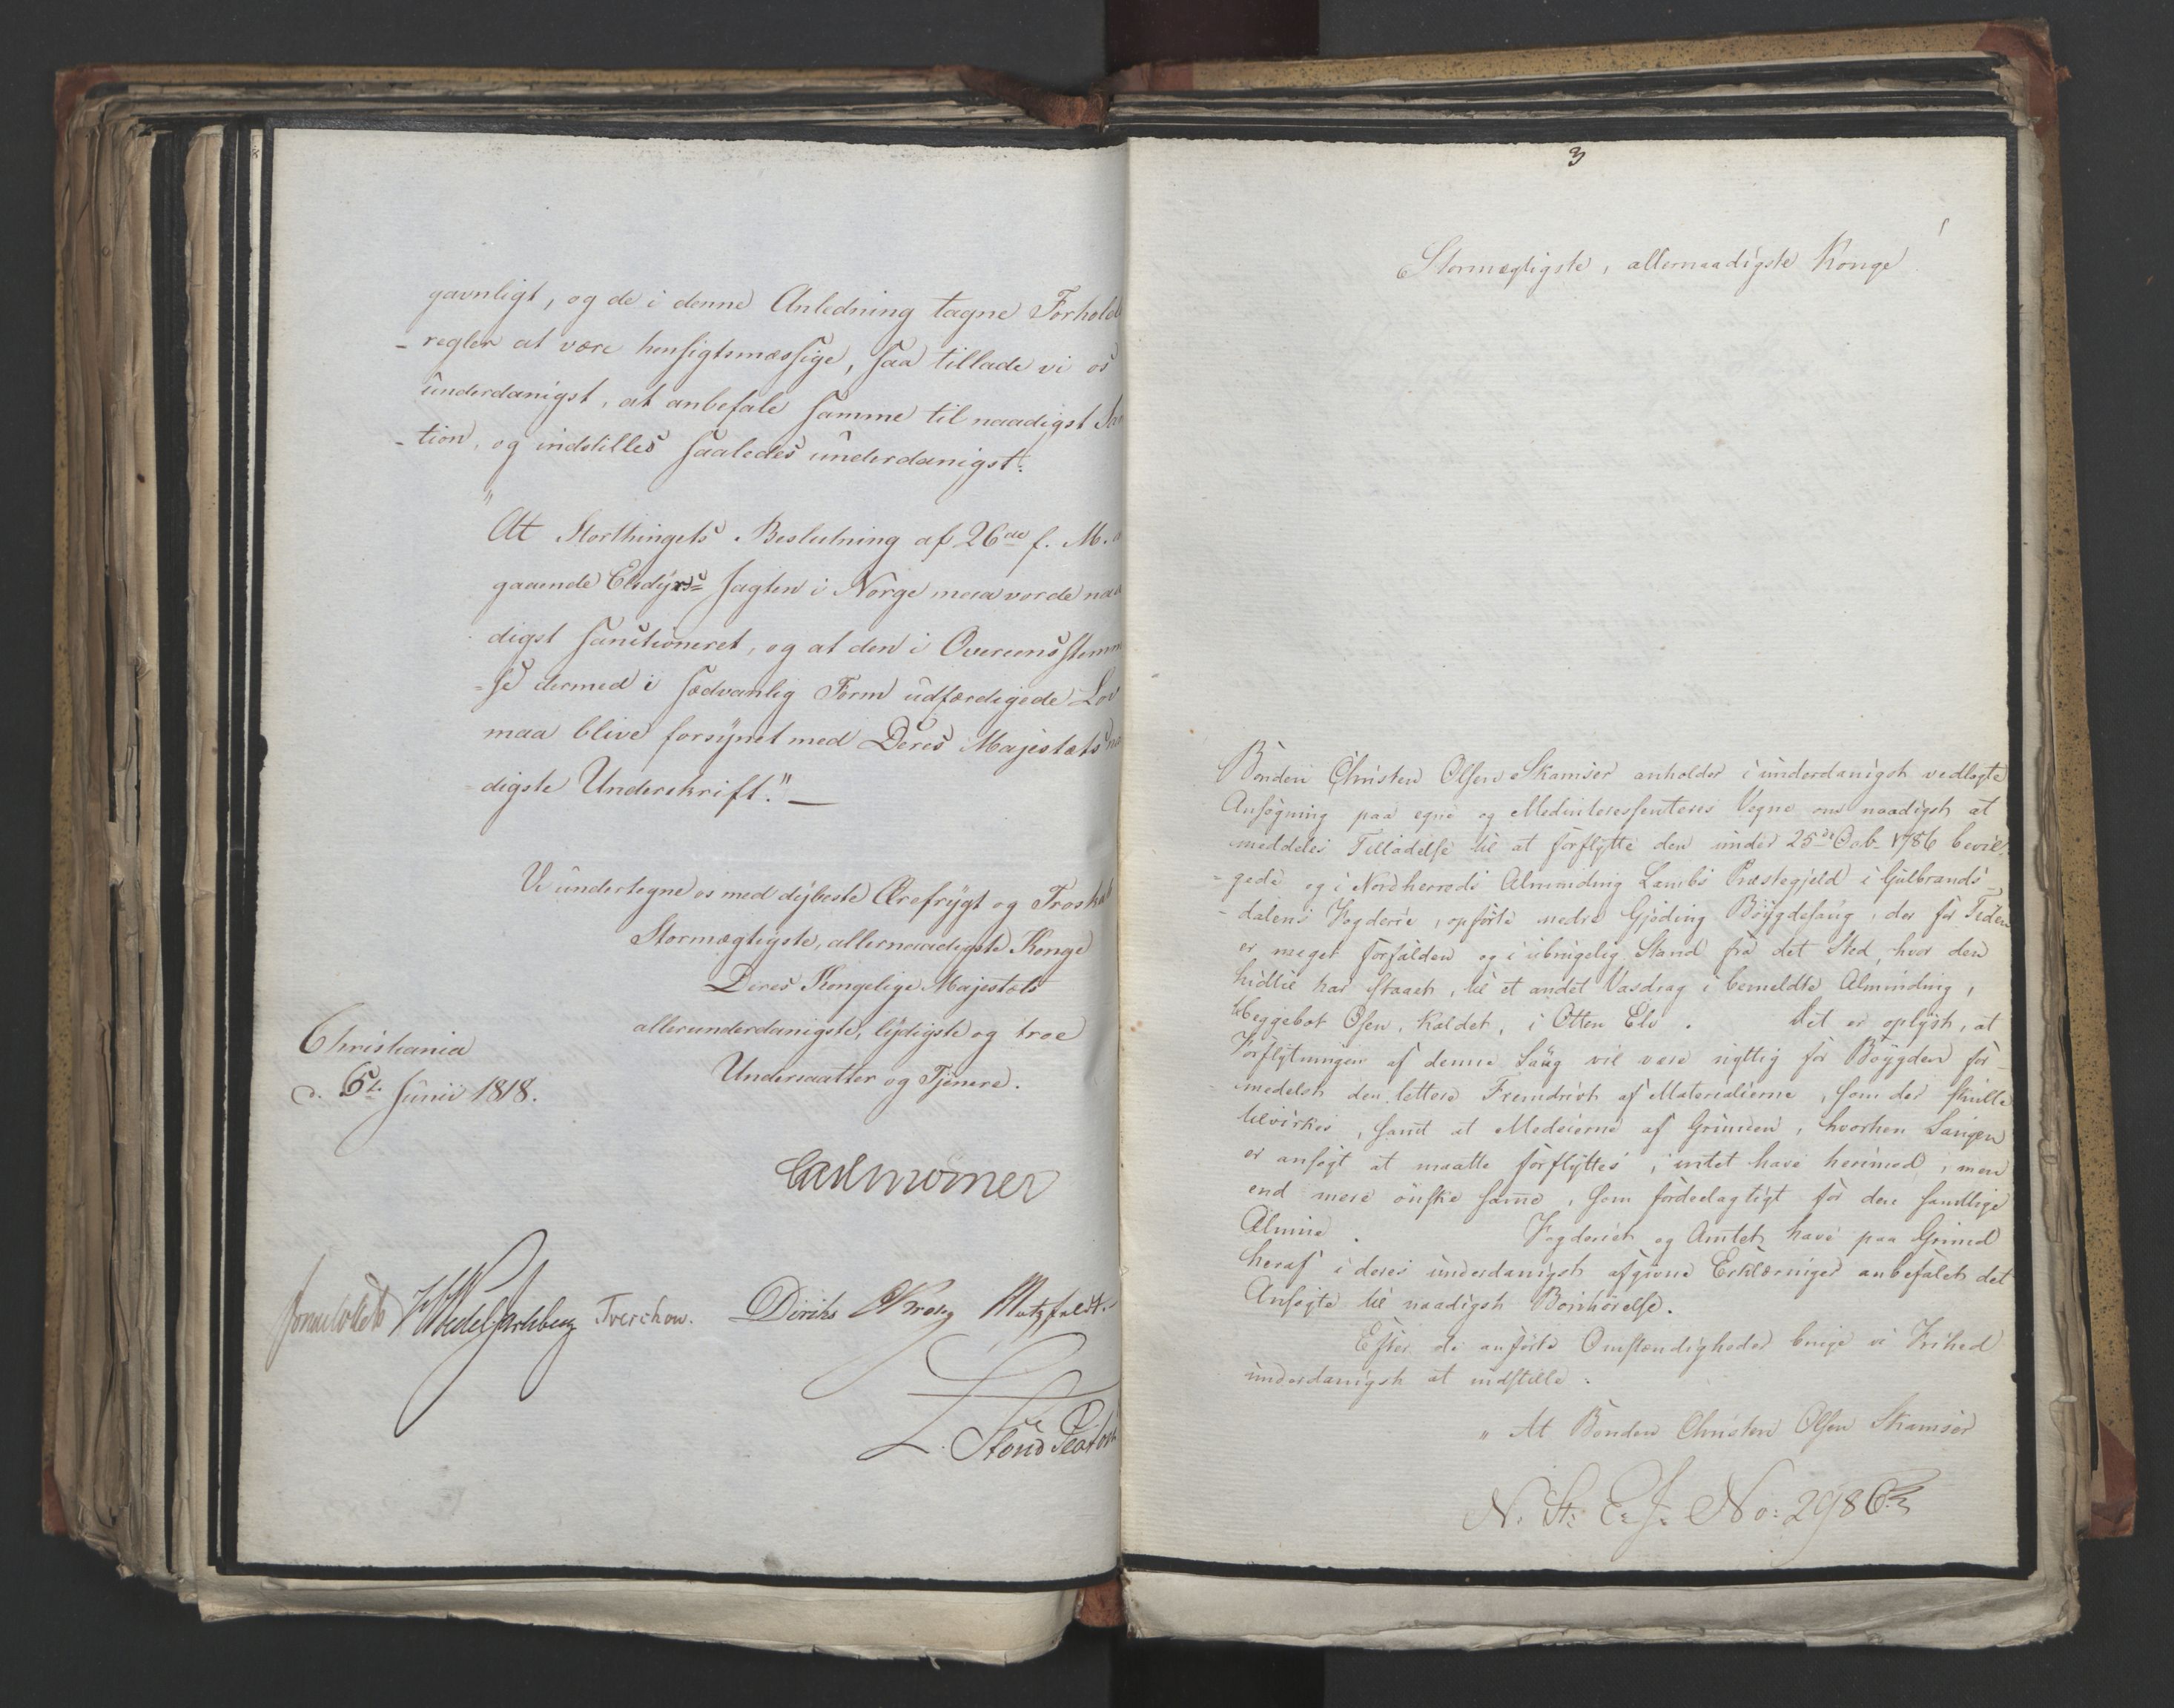 gavnligt, og de i denne Anledning tagne Forholds
- regler at være hensigtsmæssige, saa tillade vi os
underdanigst, at anbefale samme til naadigst San
- tion, og indstilles saaledes underdanigst:
"
At Storthingets Beslutning af 26de f. M. a
gaaende Elsdyrs= Jagten i Norge maa vorde naa
digst sanctioneret, og at den i Overeensstemm
- se dermed i sædvanlig Form udfærdigede Lov
maa blive forsynet med Deres Majestæts na
- digste Underskrift." —
Vi undertegne os med dybeste Ærefrygt og Troskab
Stormægtigste, allernaadigste Konge
Deres Kongelige Majestæts
allerunderdanigste, lydigste og troe
Undersaatter og Tjenere.
Christiania
d. 6te Junii 1818.
Carl Mörner
Sommerhielm HWedel Jarlsberg Treschow. Diriks CKrohg Motzfeldt.
L. Stoud Platou
3
Stormægtigste, allernaadigste Konge!
Bonden Christen Olsen Skamser anholder i underdanigst vedlagte
Ansøgning paa egne og Medinteressenteres Vegne om naadigst at
meddeles Tilladelse til at forflytte den under 25de Octb. 1786 bevil-
= gede og i Nordherreds Alminding Lambs Præstegjeld i Gulbrands-
- dalens Fogderie, opførte nedre Gjøding Böygdesaug, der for Tiden
er meget forfalden og i ubrugelig Stand fra det Sted, hvor den
hidtil har staaet, til et andet Vasdrag i bemeldte Alminding,
Heggebot Osen, kaldet, i Otten Elv. Det er oplyst, at
Forflytningen af denne Saug vil være nyttig for Böygden for-
- medelst den lettere Fremdrivt af Materialierne, som der skulle
tilvirkes, samt at Medeierne af Grunden, hvorhen Saugen
er ansøgt at maatte forflyttes, intet have herimod, men
end mere ønske samme, som fordeelagtigt for den samtlige
Almue. Fogderiet og Amtet have paa Grund
heraf i deres underdanigst afgivne Erklæringer anbefalet det
Ansøgte til naadigst Bønhørelse.
Efter de anførte Omstændigheder bruge vi Frihed
underdanigst at indstille:
" At Bonden Christen Olsen Skamser
N. St: E: J: No: 2986